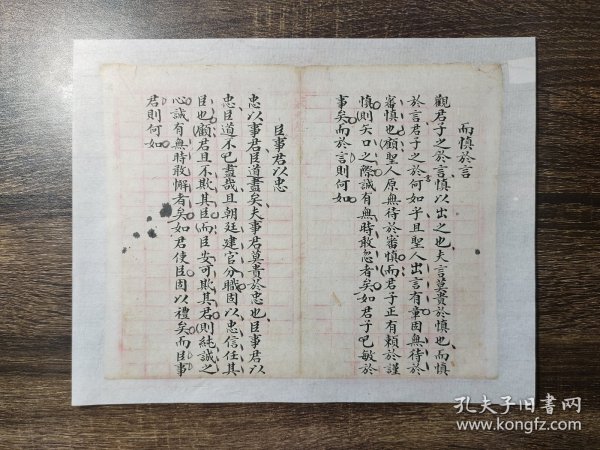 而慎於言
觀君子之於言慎以出之也夫言莫貴於慎也而慎
於言君子之於言何如乎且聖人出言有章固無待於
審慎也顧聖人原無待於審慎而君子正有賴於謹
慎則矢口之際誠有無時敢忽者矣如君子已敏於
事矣而於言則何如
臣事君以忠
忠以事君臣道盡矣夫事君莫貴於忠也臣事君以
忠臣道不已盡哉且朝廷建官分職固以忠信任其
臣也顧君且不欺其臣而臣安可欺其君則純誠之
心誠有無時敢懈者矣如君使臣固以禮矣而臣事
君則何如
孔夫子旧书网
www.kongfz.com